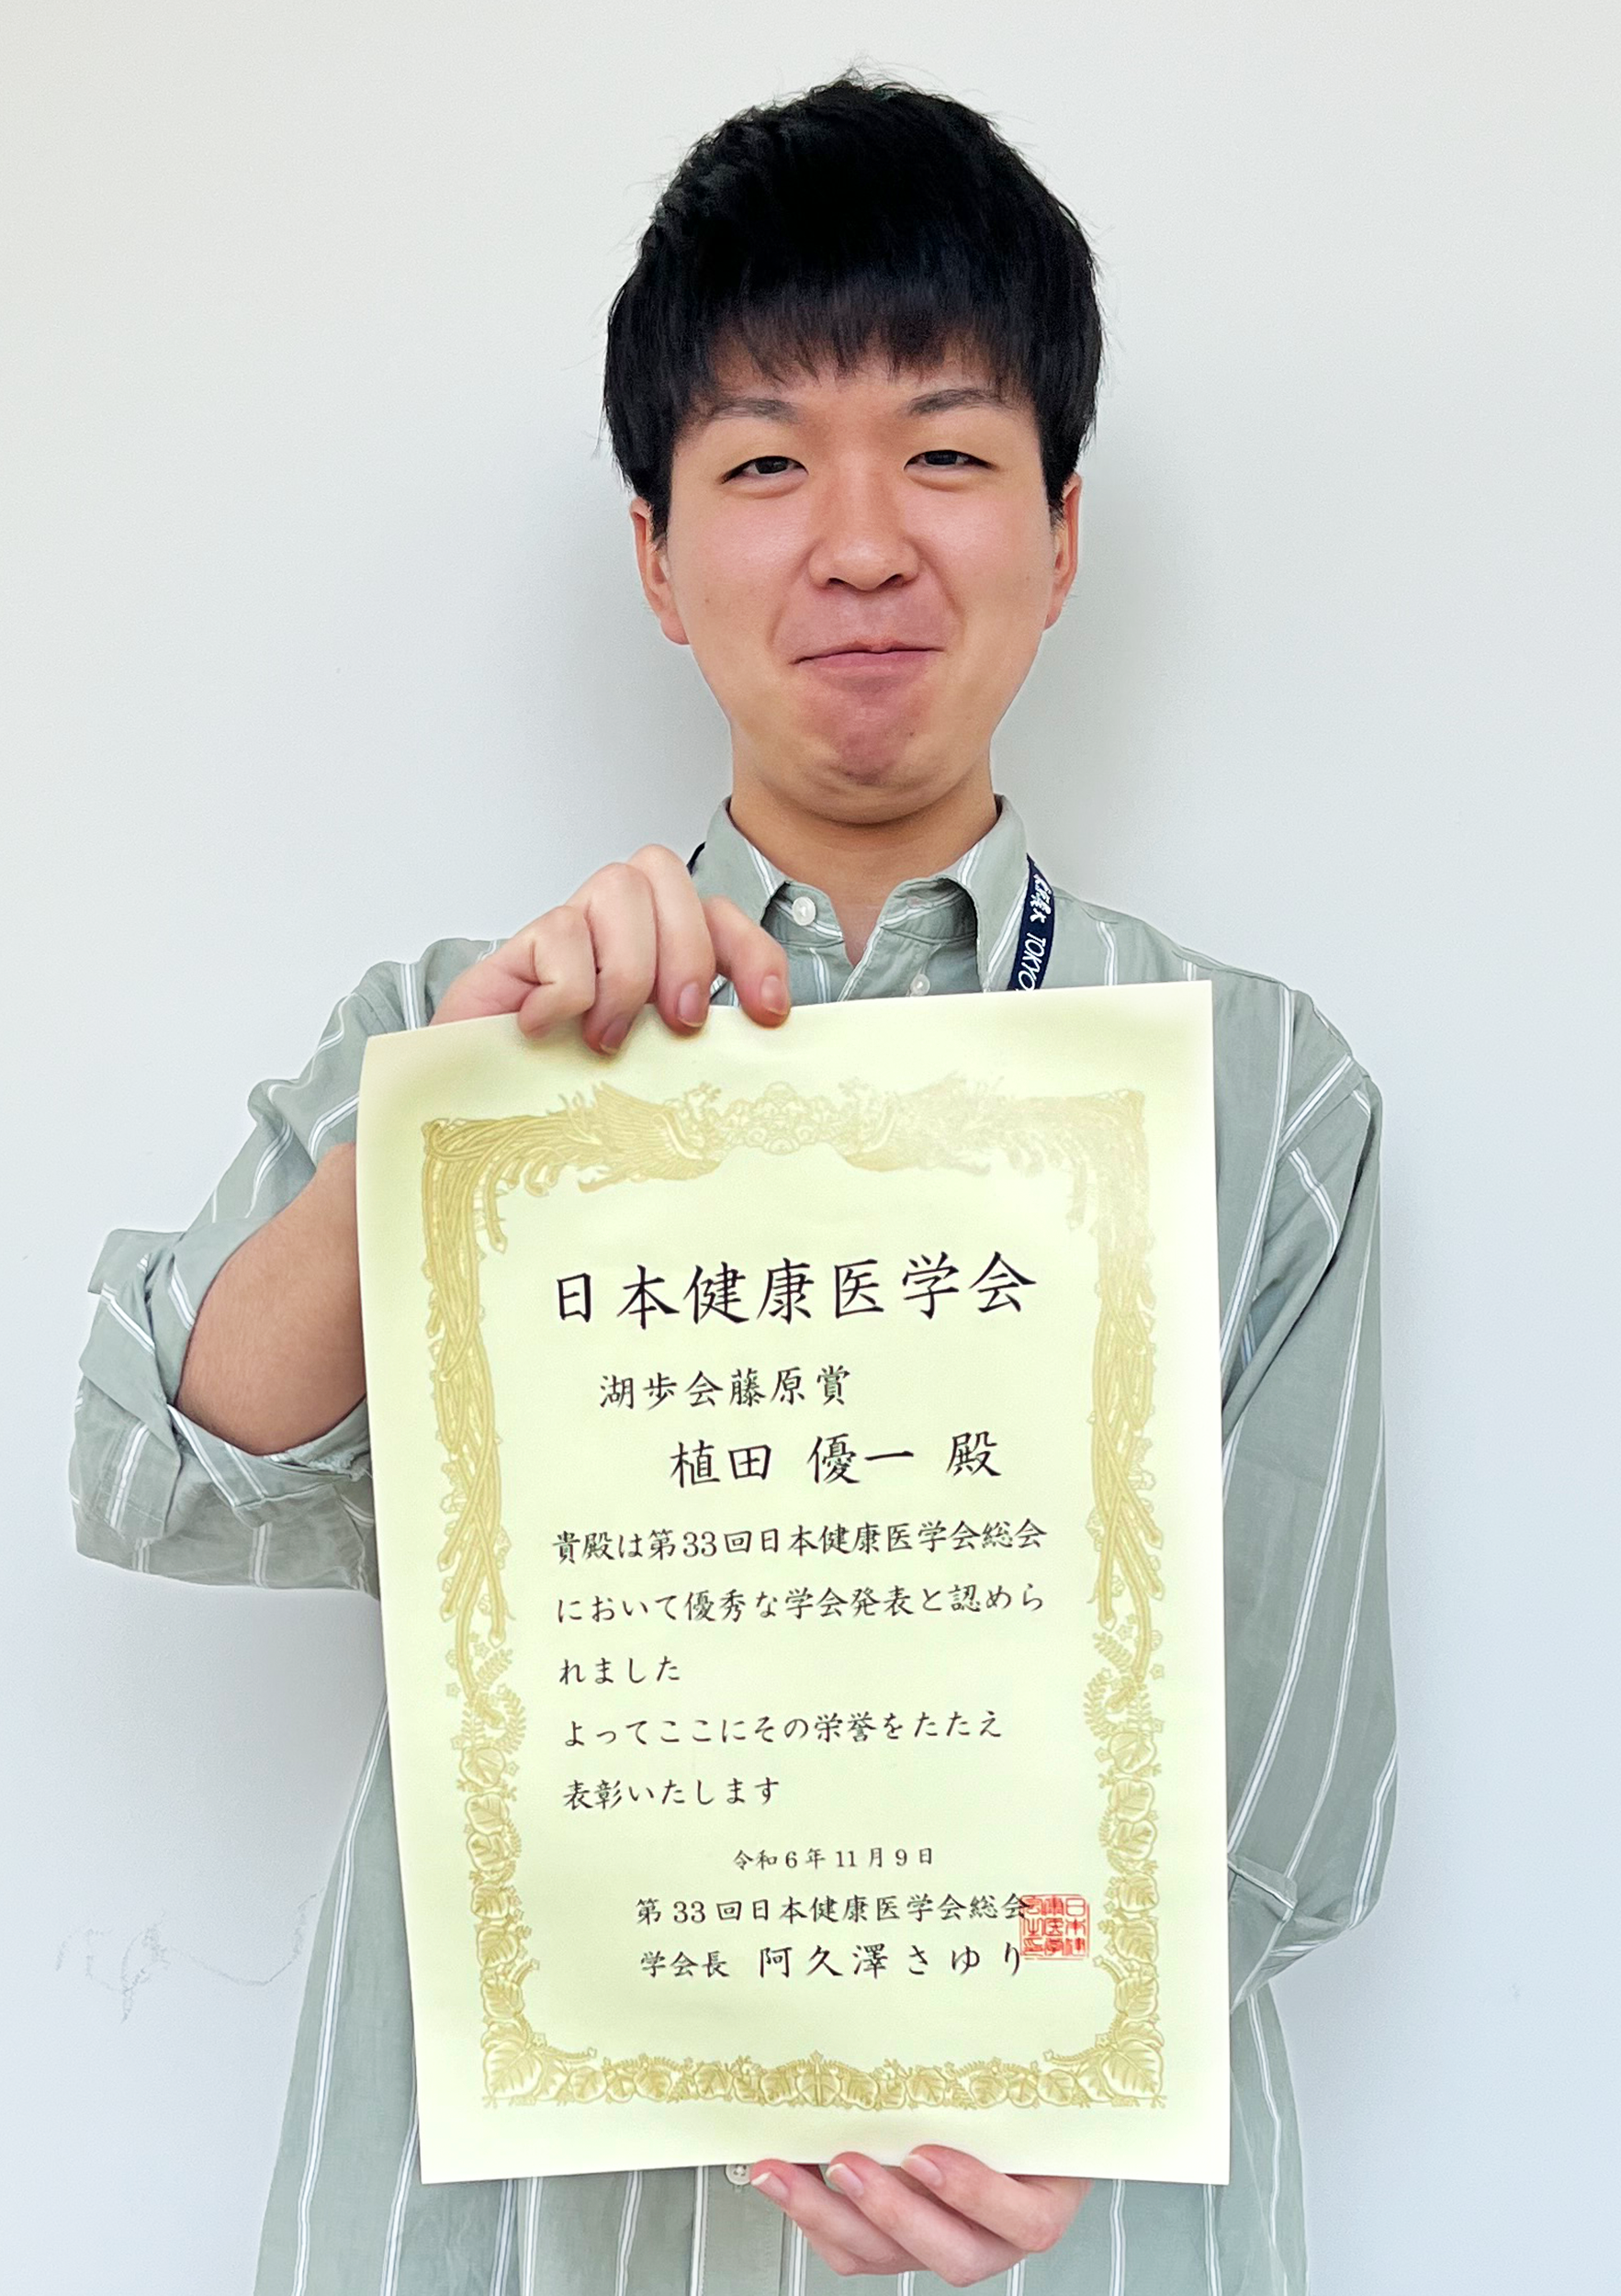 TOKYO
日本健康医学会
湖歩会藤原賞
植田 優一 殿
貴殿は第33回日本健康医学会総会
において優秀な学会発表と認めら
れました
よってここにその栄誉をたたえ
表彰いたします
令和6年11月9日
第33回日本健康医学会総会
学会長 阿久澤さゆり